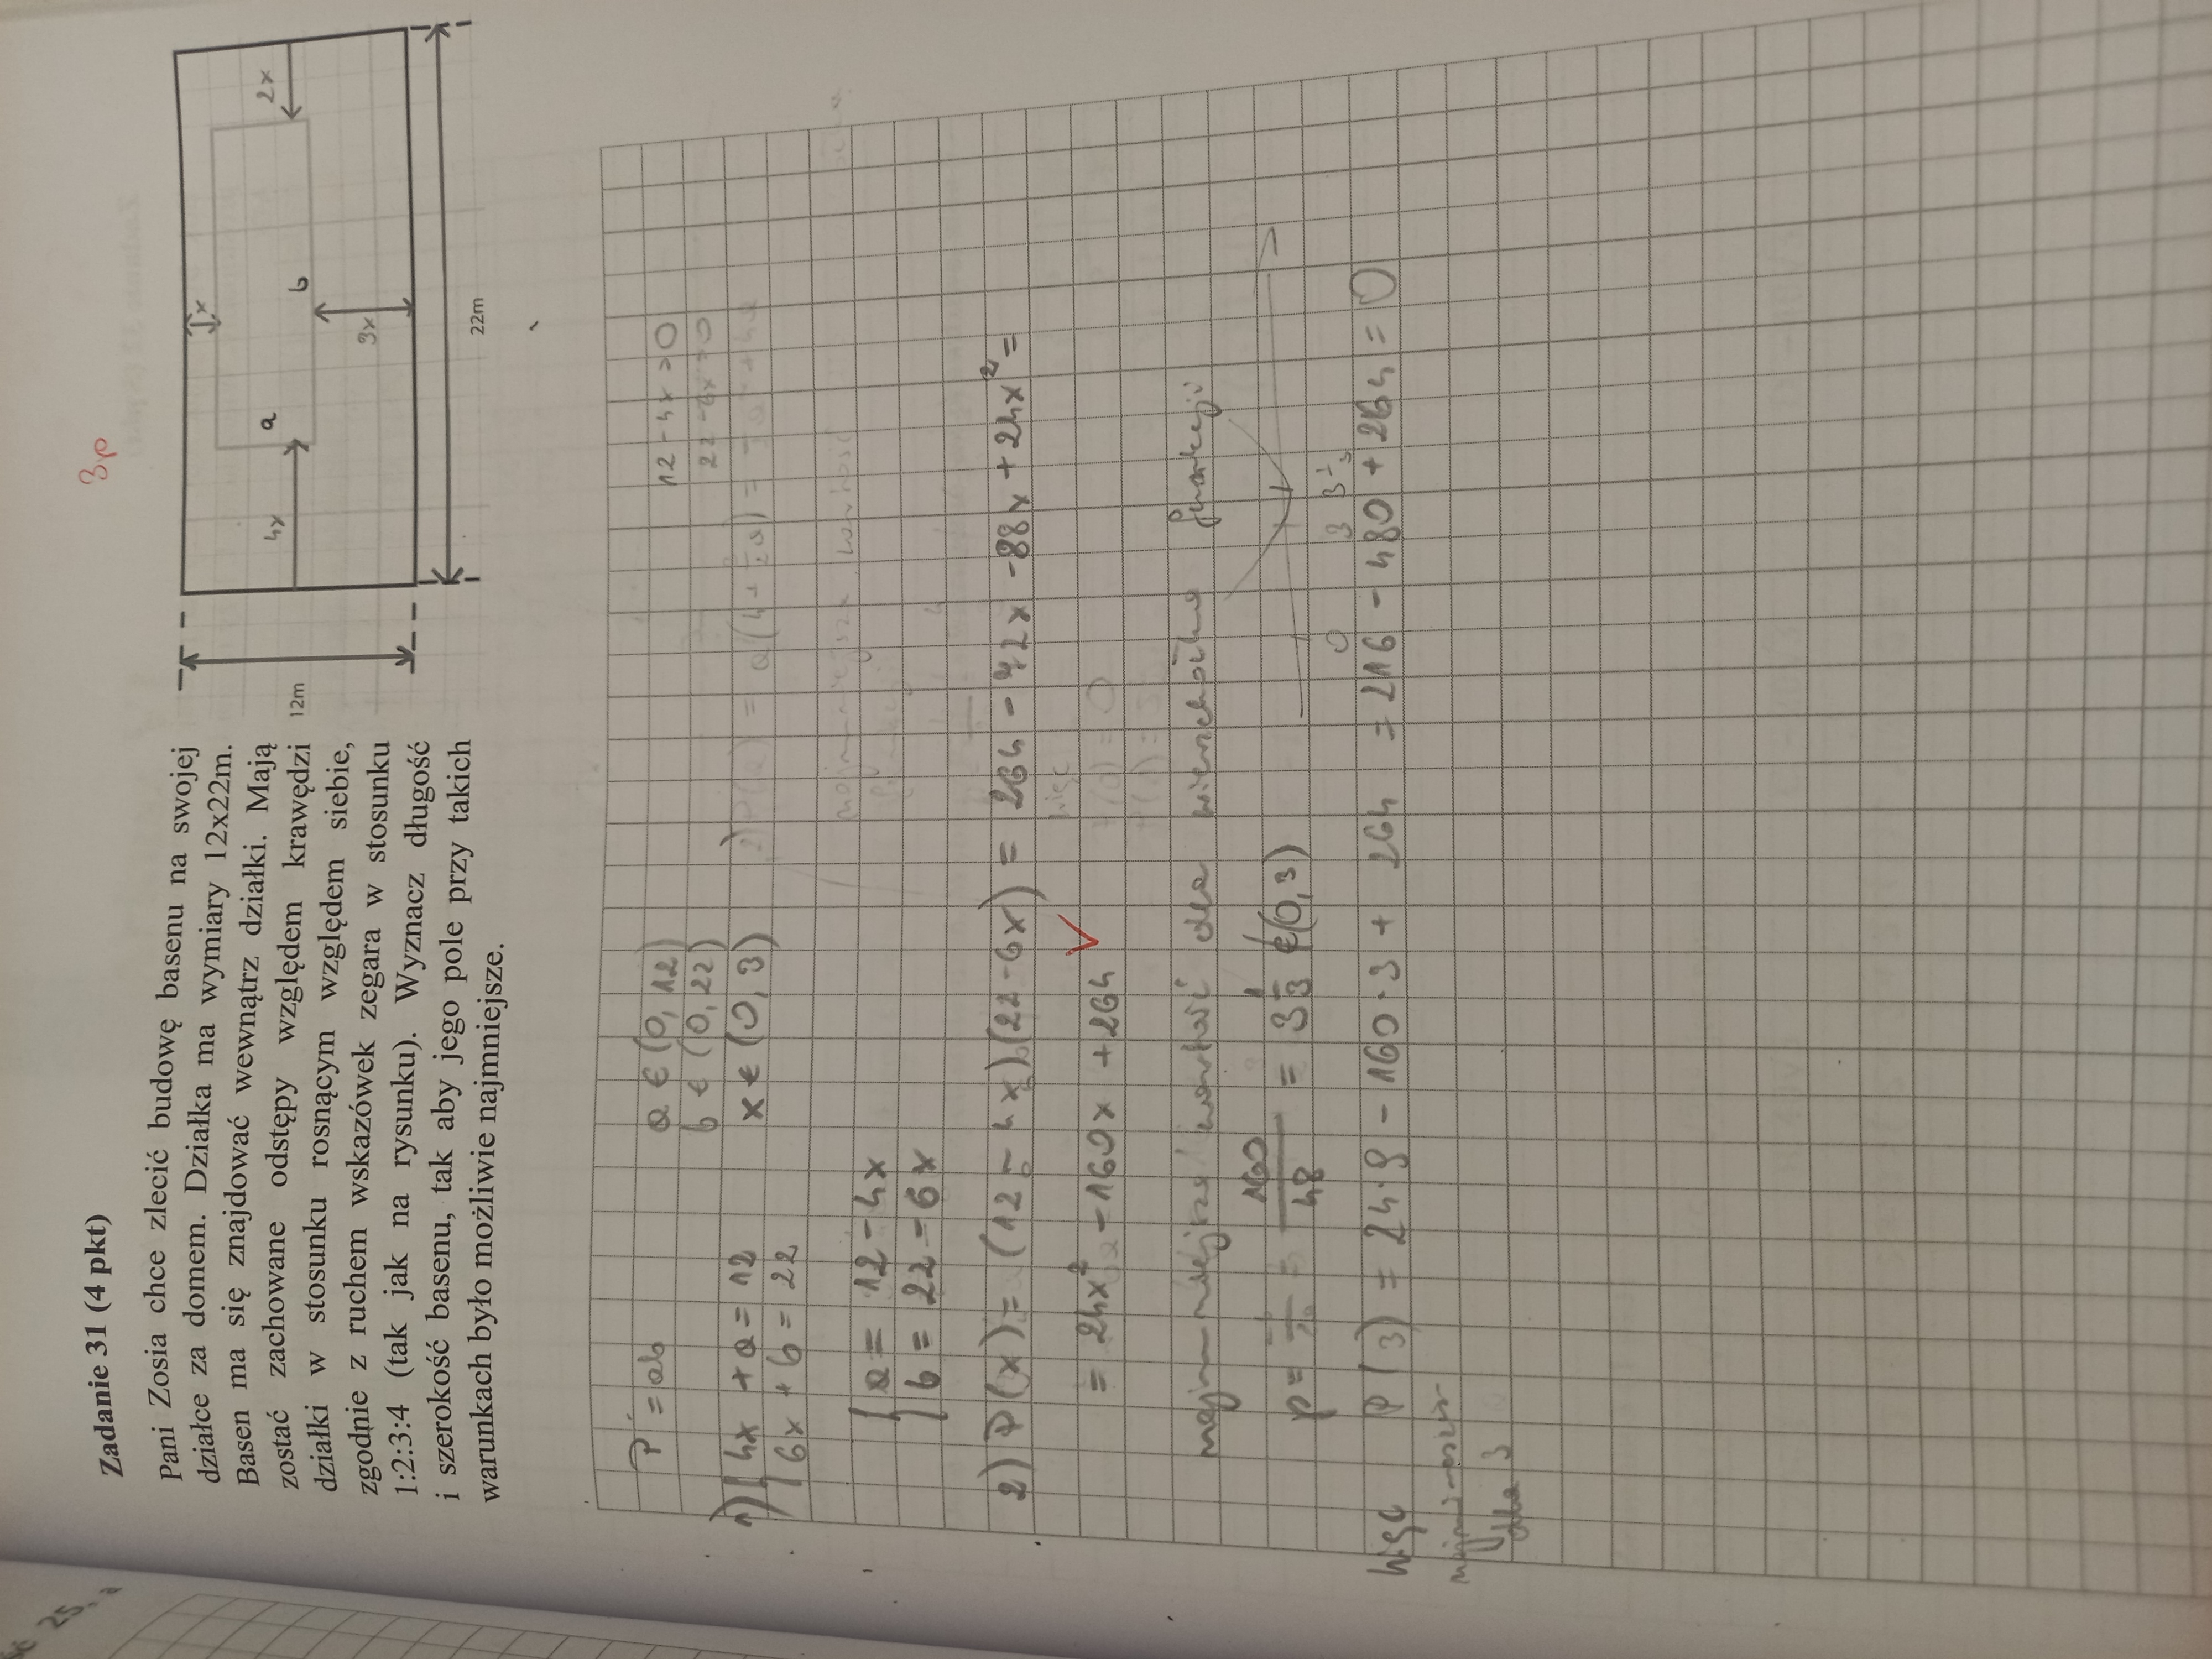 3p
Zadanie 31 (4 pkt)
Pani Zosia chce zlecić budowę basenu na swojej
działce za domem. Działka ma wymiary 12x22m.
Basen ma się znajdować wewnątrz działki. Mają
zostać zachowane odstępy względem krawędzi
działki w stosunku rosnącym względem siebie,
zgodnie z ruchem wskazówek zegara w stosunku
1:2:3:4 (tak jak na rysunku). Wyznacz długość
i szerokość basenu, tak aby jego pole przy takich
warunkach było możliwie najmniejsze.
x
2x
4x
a
b
3x
12m
22m
P = ab
a ∈ (0, 12)
12 - 4x > 0
b ∈ (0, 22)
22 - 6x > 0
1) 4x + a = 12
x ∈ (0, 3)
6x + b = 22
a = 12 - 4x
b = 22 - 6x
2) P(x) = (12 - 4x)(22 - 6x) = 264 - 72x - 88x + 24x² =
= 24x² - 160x + 264
najmniejsza wartość dla wierzchołka funkcji
p = 160/48 = 3 1/3 ∉ (0, 3)
0 3 3 1/3
więc P(3) = 24·9 - 160·3 + 264 = 216 - 480 + 264 = 0
dla 3
25.